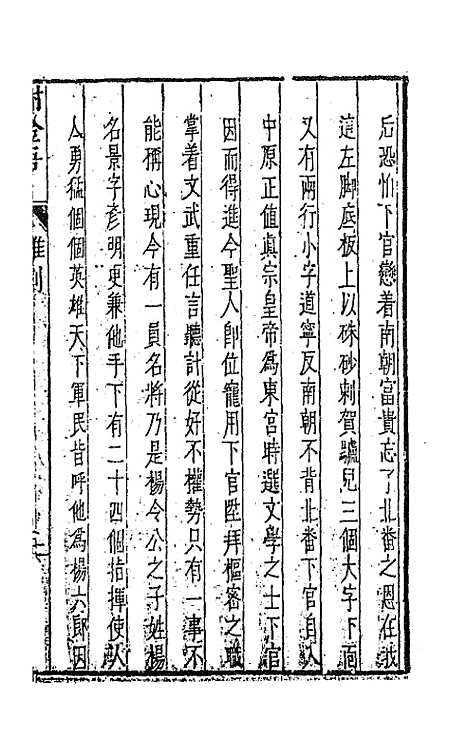 后恐怕下官戀着南朝富貴忘了北番之恩在我
這左脚底板上以硃砂刺賀驢兒三個大字下面
又有兩行小字道寧反南朝不背北番下官自入
中原正值真宗皇帝為東宮時選文學之士下官
因而得進今聖人卽位寵用下官陞拜樞密之職
掌着文武重任言聽計從好不權勢只有一事不
能稱心現今有一員名將乃是楊令公之子姓楊
名景字彥明更兼他手下有二十四個指揮使
人勇猛個個英雄天下軍民皆呼他為楊六郎因
雜劇